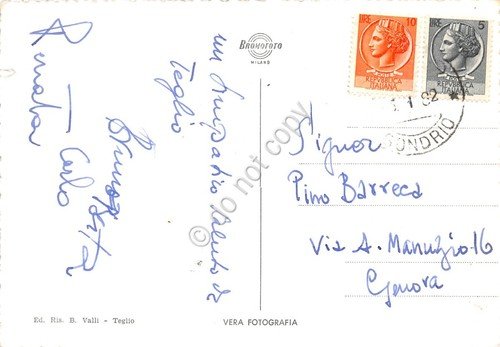 un simpatico saluto da
Teglio
Renata
Carlo
Bruno
Rita
BROMOFOTO
MILANO
LIRE 10
REPUBBLICA
ITALIANA
LIRE 5
REPUBBLICA
ITALIANA
SONDRIO
Signor
Pino Barreca
Via A. Manuzio 16
Genova
Ed. Ris. B. Valli - Teglio
VERA FOTOGRAFIA
do not copy